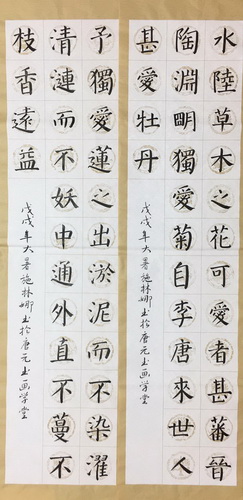 水陸草木之花可愛者甚蕃晉
陶淵明獨愛菊自李唐來世人
甚愛牡丹
戊戌年大暑施林娜书於唐元书画学堂
予獨愛蓮之出淤泥而不染濯
清漣而不妖中通外直不蔓不
枝香遠益
戊戌年大暑施林娜书於唐元书画学堂